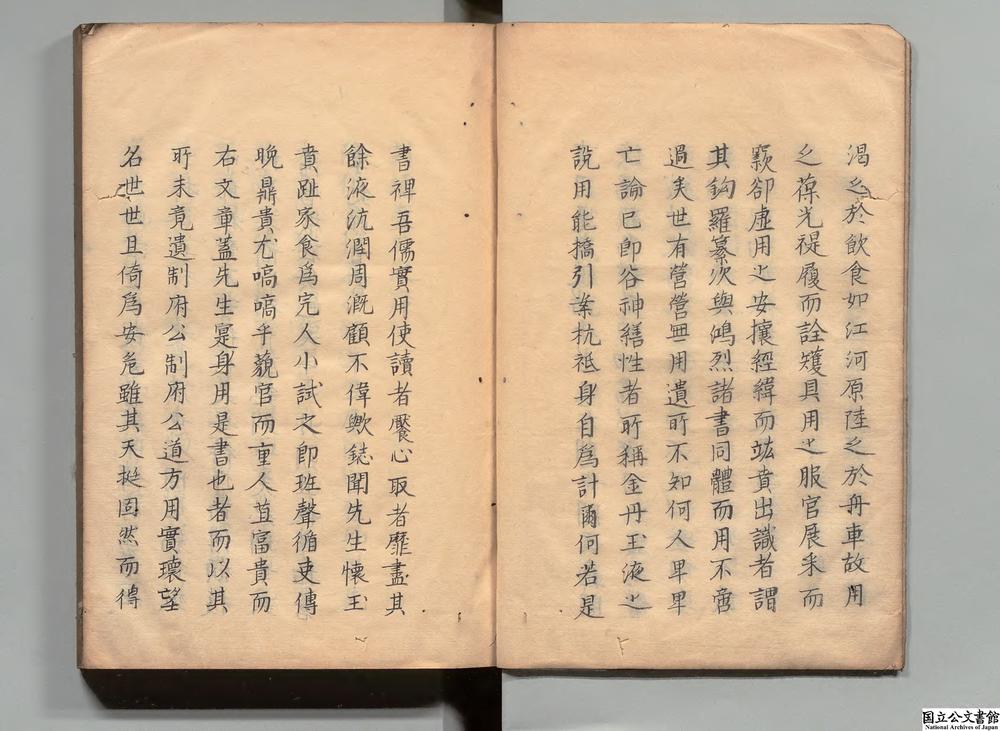 渴之於飲食如江河原陸之於舟車故用
之葆光禔履而詮矱具用之服官展采而
窾卻虛用之安攘經緯而竑賁出識者謂
其鈎羅纂次與鴻烈諸書同體而用不啻
過矣世有營營無用遺所不知何人卑卑
亡論已即谷神繕性者所稱金丹玉液之
說用能撟引業杭祗身自爲計爾何若是
書裨吾儒實用使讀者饜心取者靡盡其
餘液沆瀾周溉顧不偉歟鋕聞先生懷玉
賁趾家食爲完人小試之即班聲循吏傳
晚鼎貴尤嗃嗃乎藐官而重人苴富貴而
右文章蓋先生寔身用是書也者而以其
所未竟遺制府公制府公道方用實瓌望
名世世且倚爲安危雖其天挺固然而得
国立公文書館
National Archives of Japan